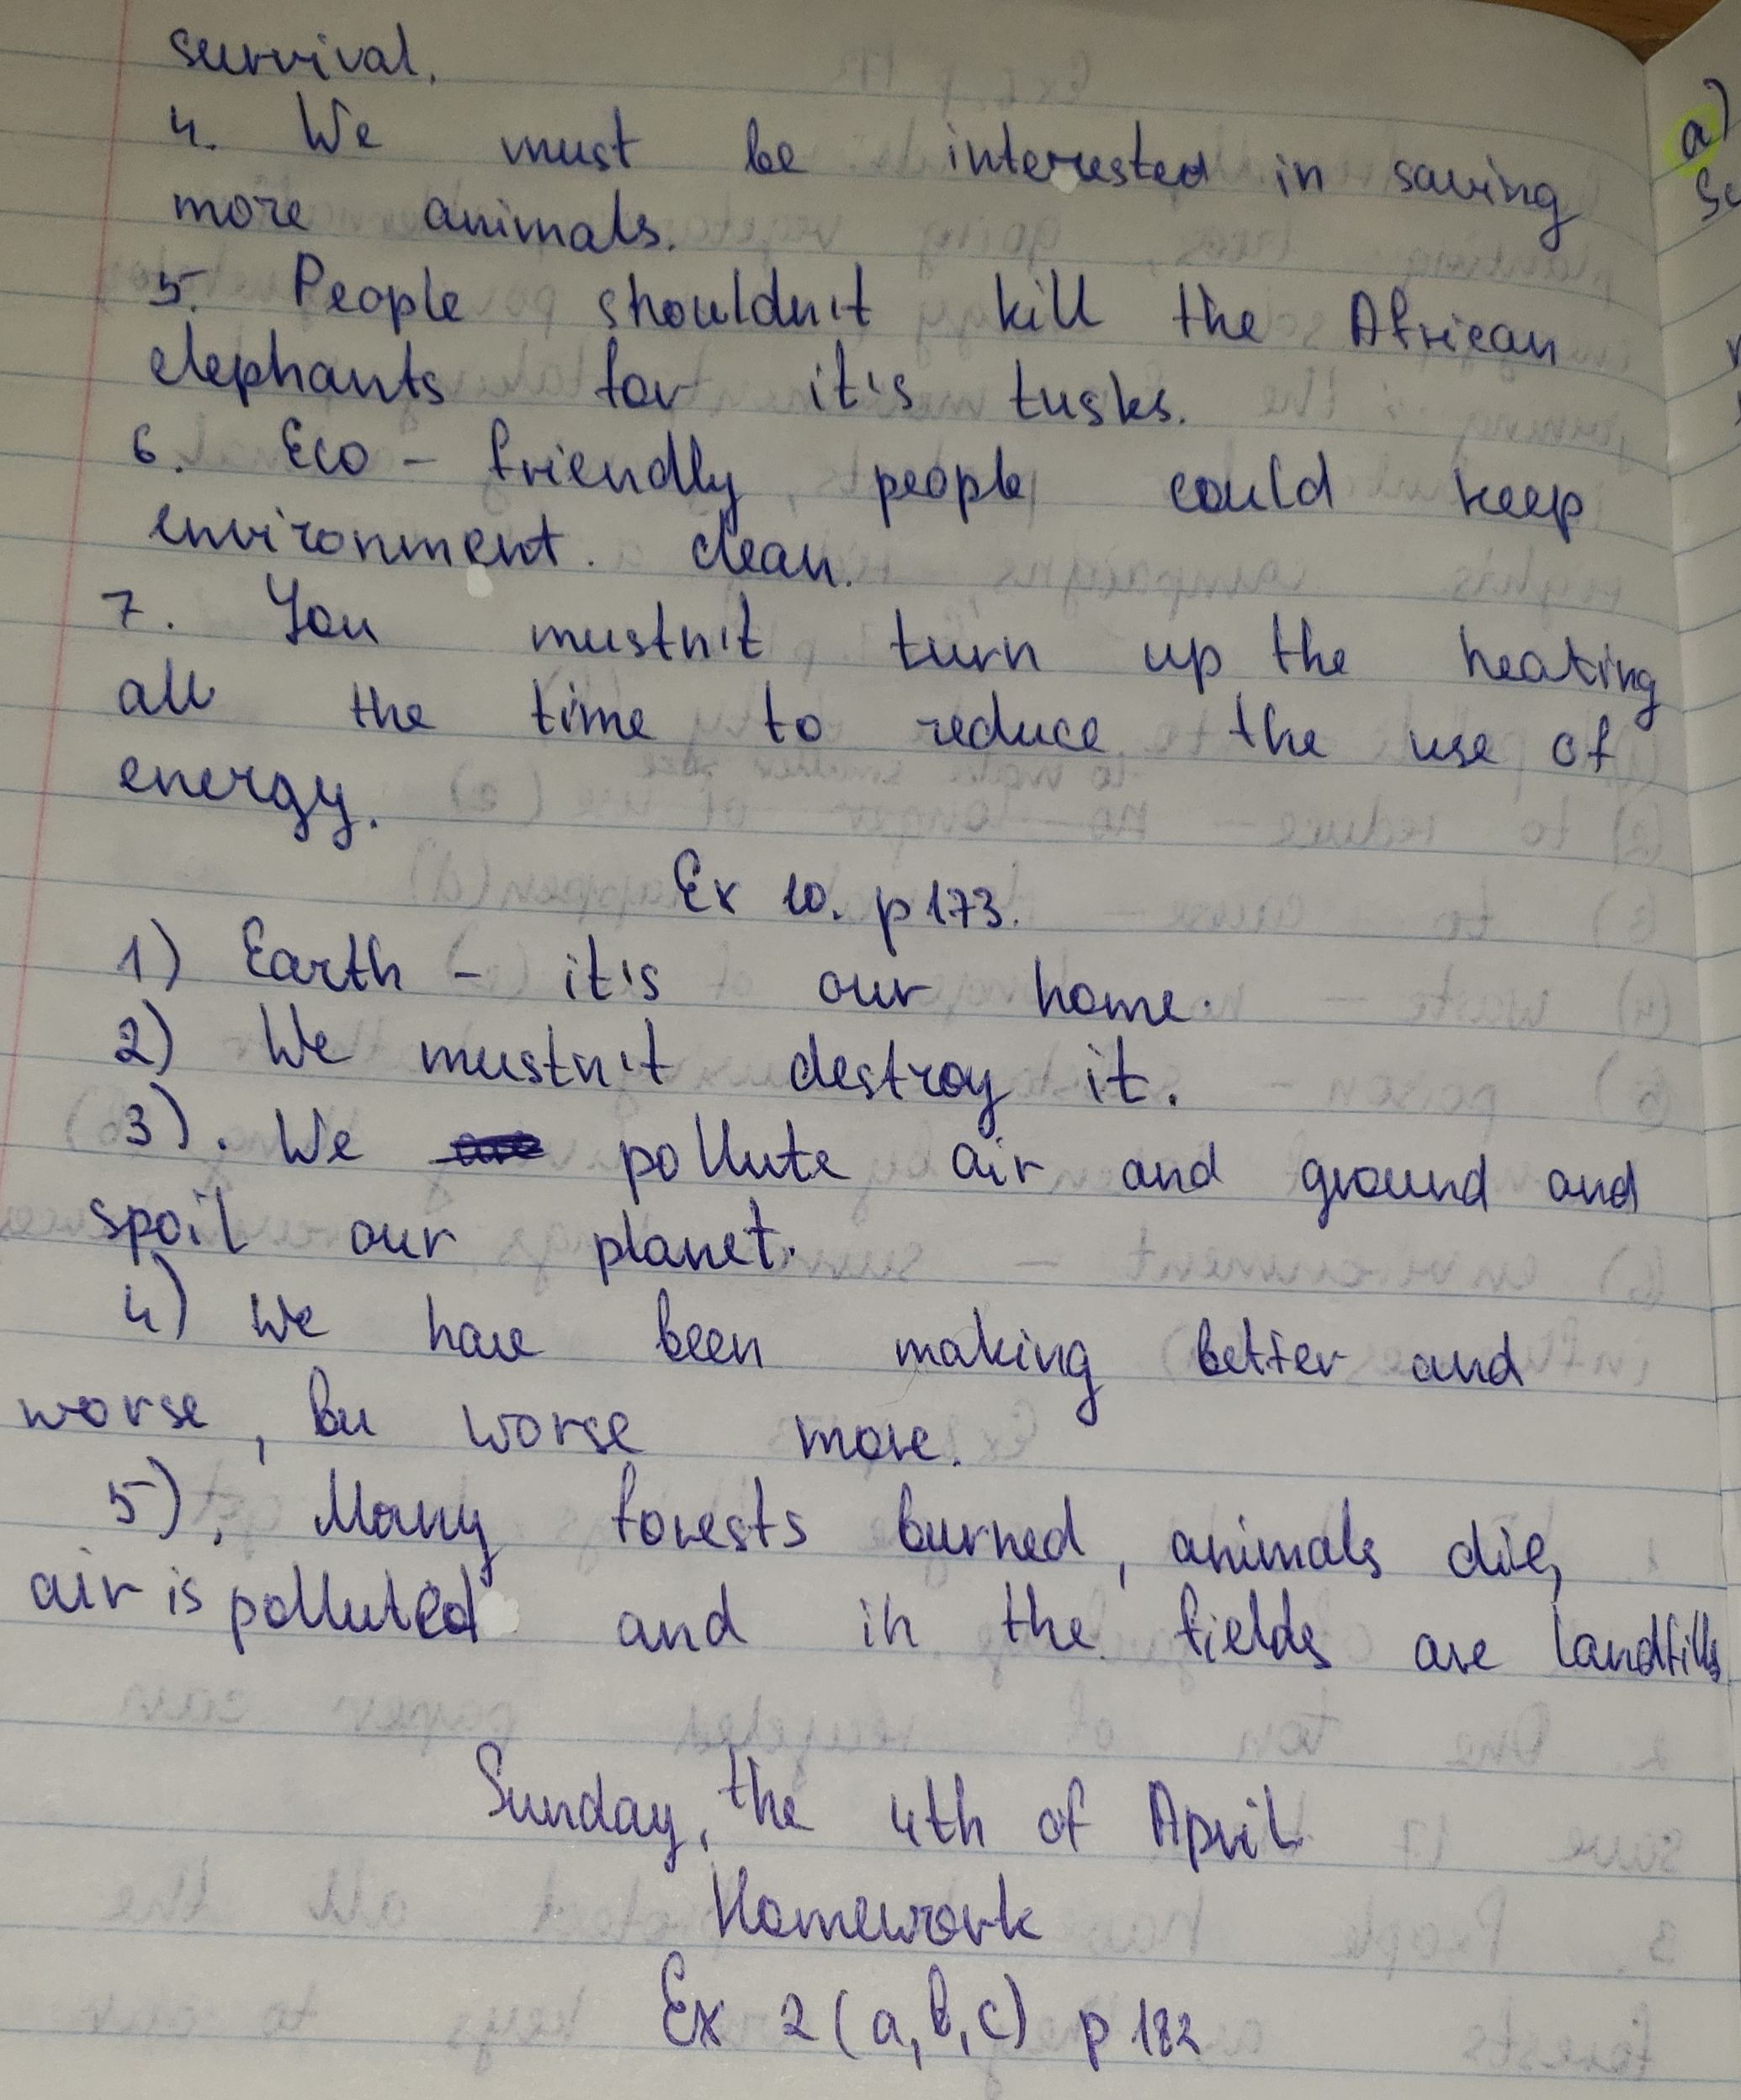 survival.
4. We must be interested in saving
more animals.
5. People shouldn't kill the African
elephants for it's tusks.
6. Eco - friendly people could keep
environment. clean.
7. You mustn't turn up the heating
all the time to reduce the use of
energy.
Ex 10. p 173.
1) Earth - it's our home.
2) We mustn't destroy it.
3). We pollute air and ground and
spoil our planet.
4) We have been making better and
worse, bu worse more.
5). Many forests burned, animals die,
air is polluted and in the fields are landfills
Sunday, the 4th of April
Homework
Ex 2 (a, b, c) p 182
a)